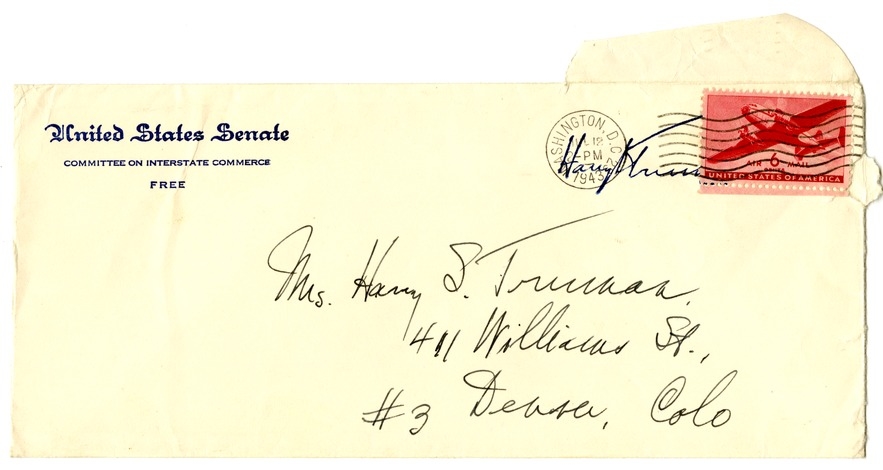 United States Senate
COMMITTEE ON INTERSTATE COMMERCE
FREE
WASHINGTON, D.C.
JUL 12
PM
1943
Harry S Truman
AIR 6 MAIL
CENTS
UNITED STATES OF AMERICA
Mrs. Harry S. Truman,
411 Williams St.,
#3 Denver, Colo